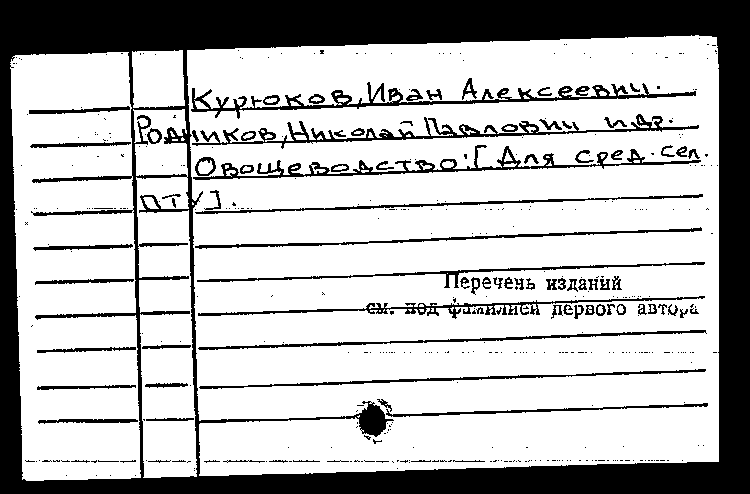 Курюков, Иван Алексеевич.
Родников, Николай Павлович и др.
Овощеводство: [Для сред. сел.
ПТУ].
Перечень изданий
см. под фамилией первого автора